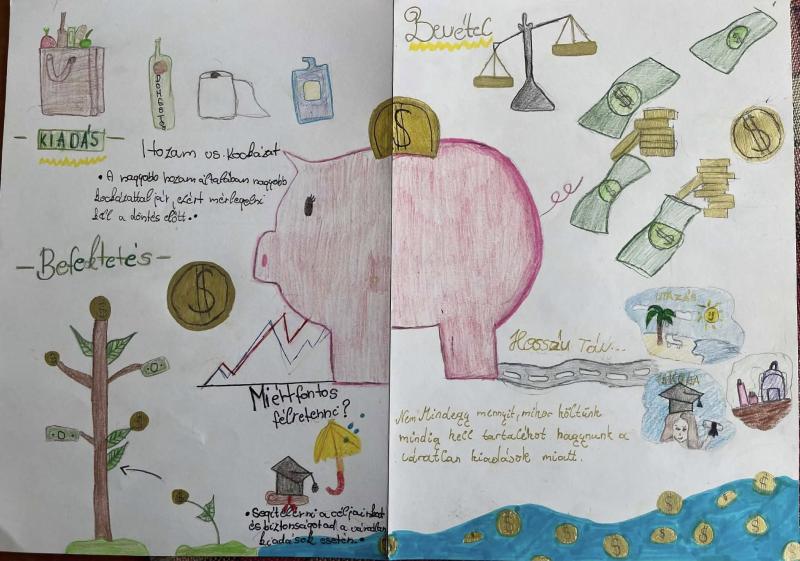 KIADÁS
Hozam vs. Kockázat
• A nagyobb hozam általában nagyobb
kockázattal jár, ezért mérlegelni
kell a döntés előtt. •
- Befektetés -
Miért fontos
félretenni?
• Segít elérni a céljainkat
és biztonságot ad a váratlan
kiadások esetén. •
Bevétel
$
Hosszú Táv...
UTAZÁS
Nem Mindegy mennyit, mikor költünk
mindig kell tartalékot hagynunk a
váratlan kiadások miatt.